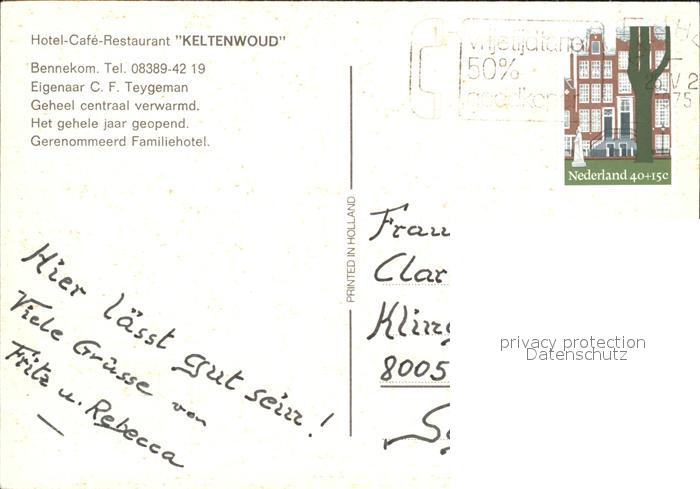 Hotel-Café-Restaurant "KELTENWOUD"
Bennekom. Tel. 08389-42 19
Eigenaar C. F. Teygeman
Geheel centraal verwarmd.
Het gehele jaar geopend.
Gerenommeerd Familiehotel.
Hier lässt gut sein!
Viele Grüsse von
Fritz u. Rebecca
PRINTED IN HOLLAND
50%
1975
Nederland 40+15c
Frau
Clar
Kling
8005
privacy protection
Datenschutz